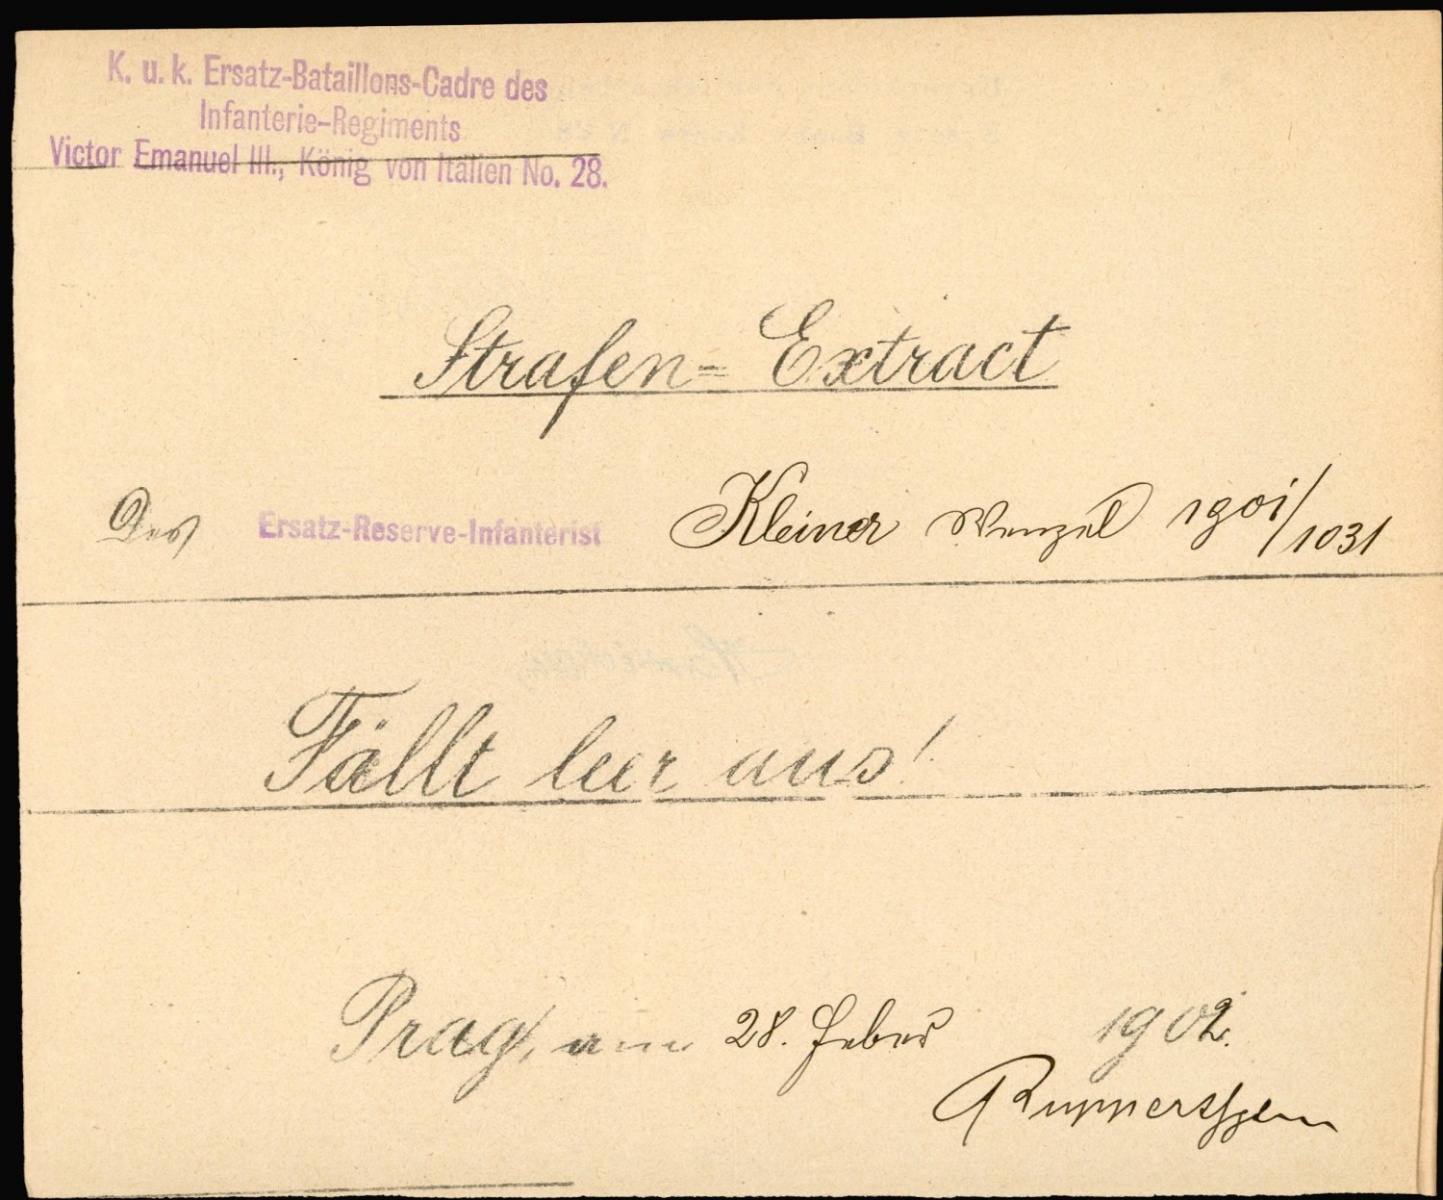 K. u. k. Ersatz-Bataillons-Cadre des
Infanterie-Regiments
Victor Emanuel III., König von Italien No. 28.
Strafen= Extract
Des Ersatz-Reserve-Infanterist Kleiner Wenzel 1901/1031
Fällt leer aus!
Prag, am 28. Feber 1902.